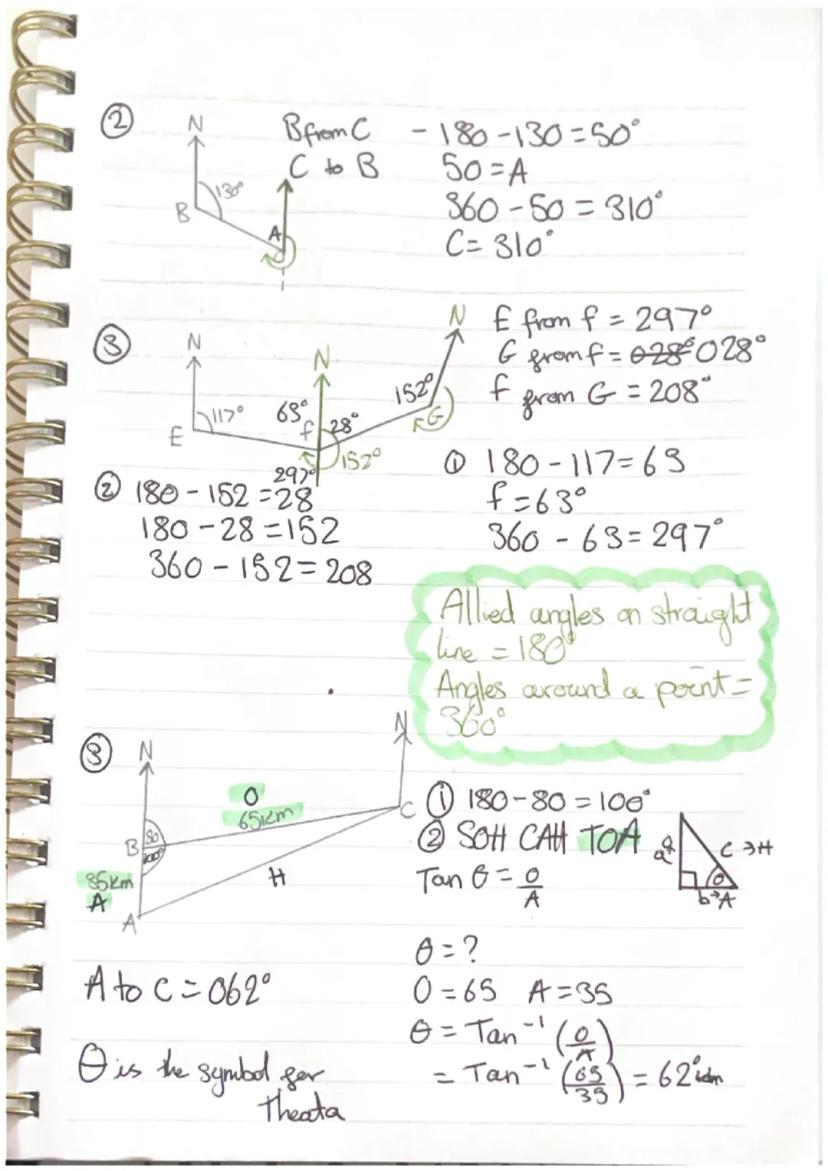 ②
N
B from C
C to B
130°
B
A
- 180 - 130 = 50°
50 = A
360 - 50 = 310°
C = 310°
③
N
E
117°
N
63°
f
28°
152°
297°
N
152°
G
E from f = 297°
G from f = 028° 028°
f from G = 208°
① 180 - 117 = 63
f = 63°
360 - 63 = 297°
② 180 - 152 = 28
180 - 28 = 152
360 - 152 = 208
Allied angles on straight
line = 180°
Angles around a point =
360°
③
N
O
65km
N
C
B
80
100°
35km
A
H
A
① 180 - 80 = 100°
② SOH CAH TOA
Tan θ = O/A
a
C → H
θ
b → A
θ = ?
O = 65 A = 35
θ = Tan⁻¹ (O/A)
= Tan⁻¹ (65/35) = 62°
A to C = 062°
θ is the symbol for
Theata